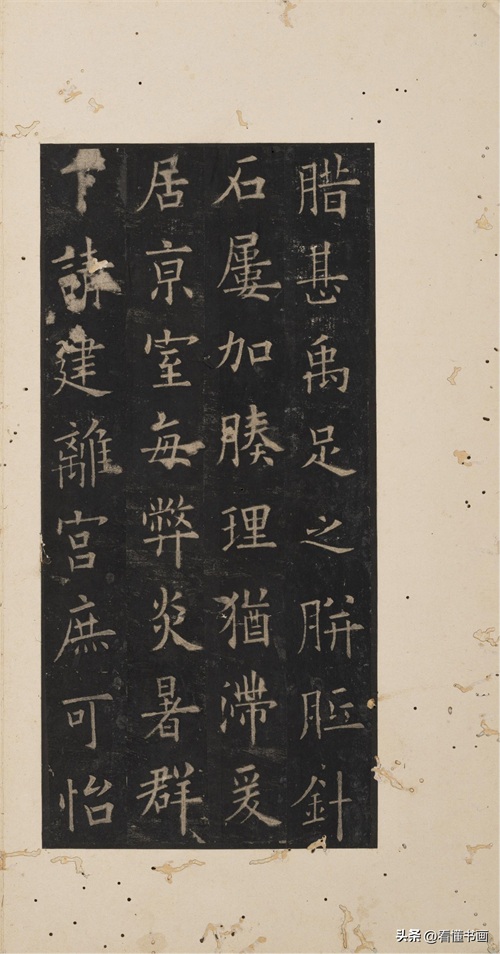 腊甚禹足之胼胝針
石屢加腠理猶滯爰
居京室每弊炎暑群
下請建離宮庶可怡
头条 @看懂书画